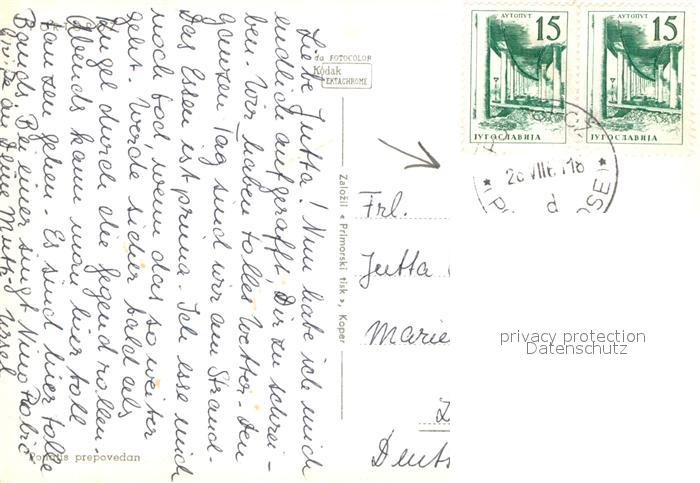 Liebe Jutta! Nun habe ich mich
endlich aufgerafft, Dir zu schrei-
ben. Wir haben tolles Wetter. Den
ganzen Tag sind wir am Strand.
Das Essen ist prima. Ich esse mich
noch tod, wenn das so weiter
geht. Werde sicher bald als
Kugel durch die Gegend rollen.
Abends kann man hier toll
tanzen gehen. Es sind hier tolle
Bands. Bei einer singt Nino Robić
Grüße an Deine Mutti
Ursel
da FOTOCOLOR
Kodak
EKTACHROME
Založil « Primorski tisk », Koper
Ponatis prepovedan
АУТОПУТ
15
ЈУГОСЛАВИЈА
АУТОПУТ
15
ЈУГОСЛАВИЈА
Frl.
Jutta
Marie
Deuts
privacy protection
Datenschutz